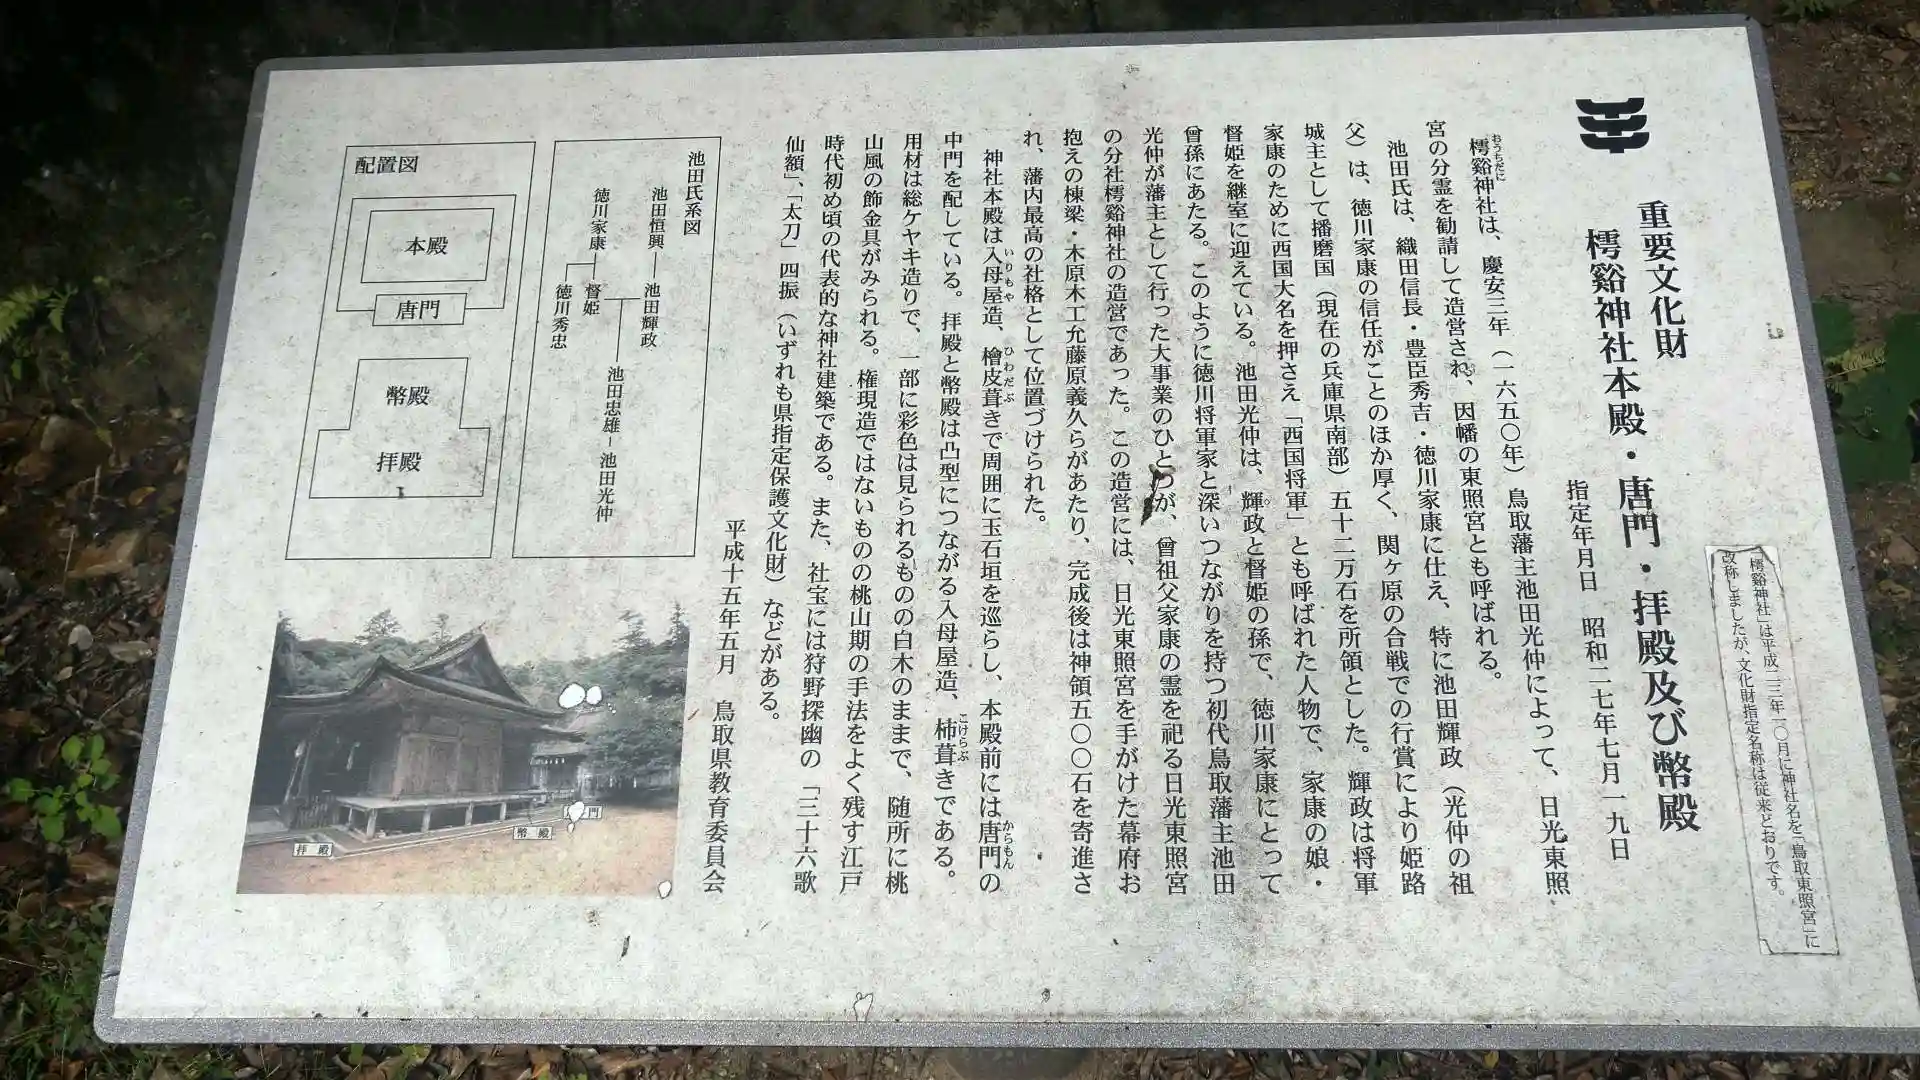 「樗谿神社」は平成二三年一〇月に神社名を「鳥取東照宮」に
改称しましたが、文化財指定名称は従来どおりです。
重要文化財
樗谿神社本殿・唐門・拝殿及び幣殿
指定年月日　昭和二七年七月一九日
おうちだに
樗谿神社は、慶安三年（一六五〇年）鳥取藩主池田光仲によって、日光東照
宮の分霊を勧請して造営され、因幡の東照宮とも呼ばれる。
池田氏は、織田信長・豊臣秀吉・徳川家康に仕え、特に池田輝政（光仲の祖
父）は、徳川家康の信任がことのほか厚く、関ヶ原の合戦での行賞により姫路
城主として播磨国（現在の兵庫県南部）五十二万石を所領とした。輝政は将軍
家康のために西国大名を押さえ「西国将軍」とも呼ばれた人物で、家康の娘・
督姫を継室に迎えている。池田光仲は、輝政と督姫の孫で、徳川家康にとって
曾孫にあたる。このように徳川将軍家と深いつながりを持つ初代鳥取藩主池田
光仲が藩主として行った大事業のひとつが、曾祖父家康の霊を祀る日光東照宮
の分社樗谿神社の造営であった。この造営には、日光東照宮を手がけた幕府お
抱えの棟梁・木原木工允藤原義久らがあたり、完成後は神領五〇〇石を寄進さ
れ、藩内最高の社格として位置づけられた。
いりもや　ひわだぶ　からもん
神社本殿は入母屋造、檜皮葺きで周囲に玉石垣を巡らし、本殿前には唐門の
中門を配している。拝殿と幣殿は凸型につながる入母屋造、柿葺きである。
こけらぶ
用材は総ケヤキ造りで、一部に彩色は見られるものの白木のままで、随所に桃
山風の飾金具がみられる。権現造ではないものの桃山期の手法をよく残す江戸
時代初め頃の代表的な神社建築である。また、社宝には狩野探幽の「三十六歌
仙額」、「太刀」四振（いずれも県指定保護文化財）などがある。
平成十五年五月　鳥取県教育委員会
池田氏系図
池田恒興
池田輝政
徳川家康
督姫
徳川秀忠
池田忠雄
池田光仲
配置図
本殿
唐門
幣殿
拝殿
拝殿
幣殿
門